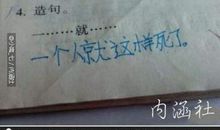 4. 造句。
一………就………
一个人就这样死了。
内涵社